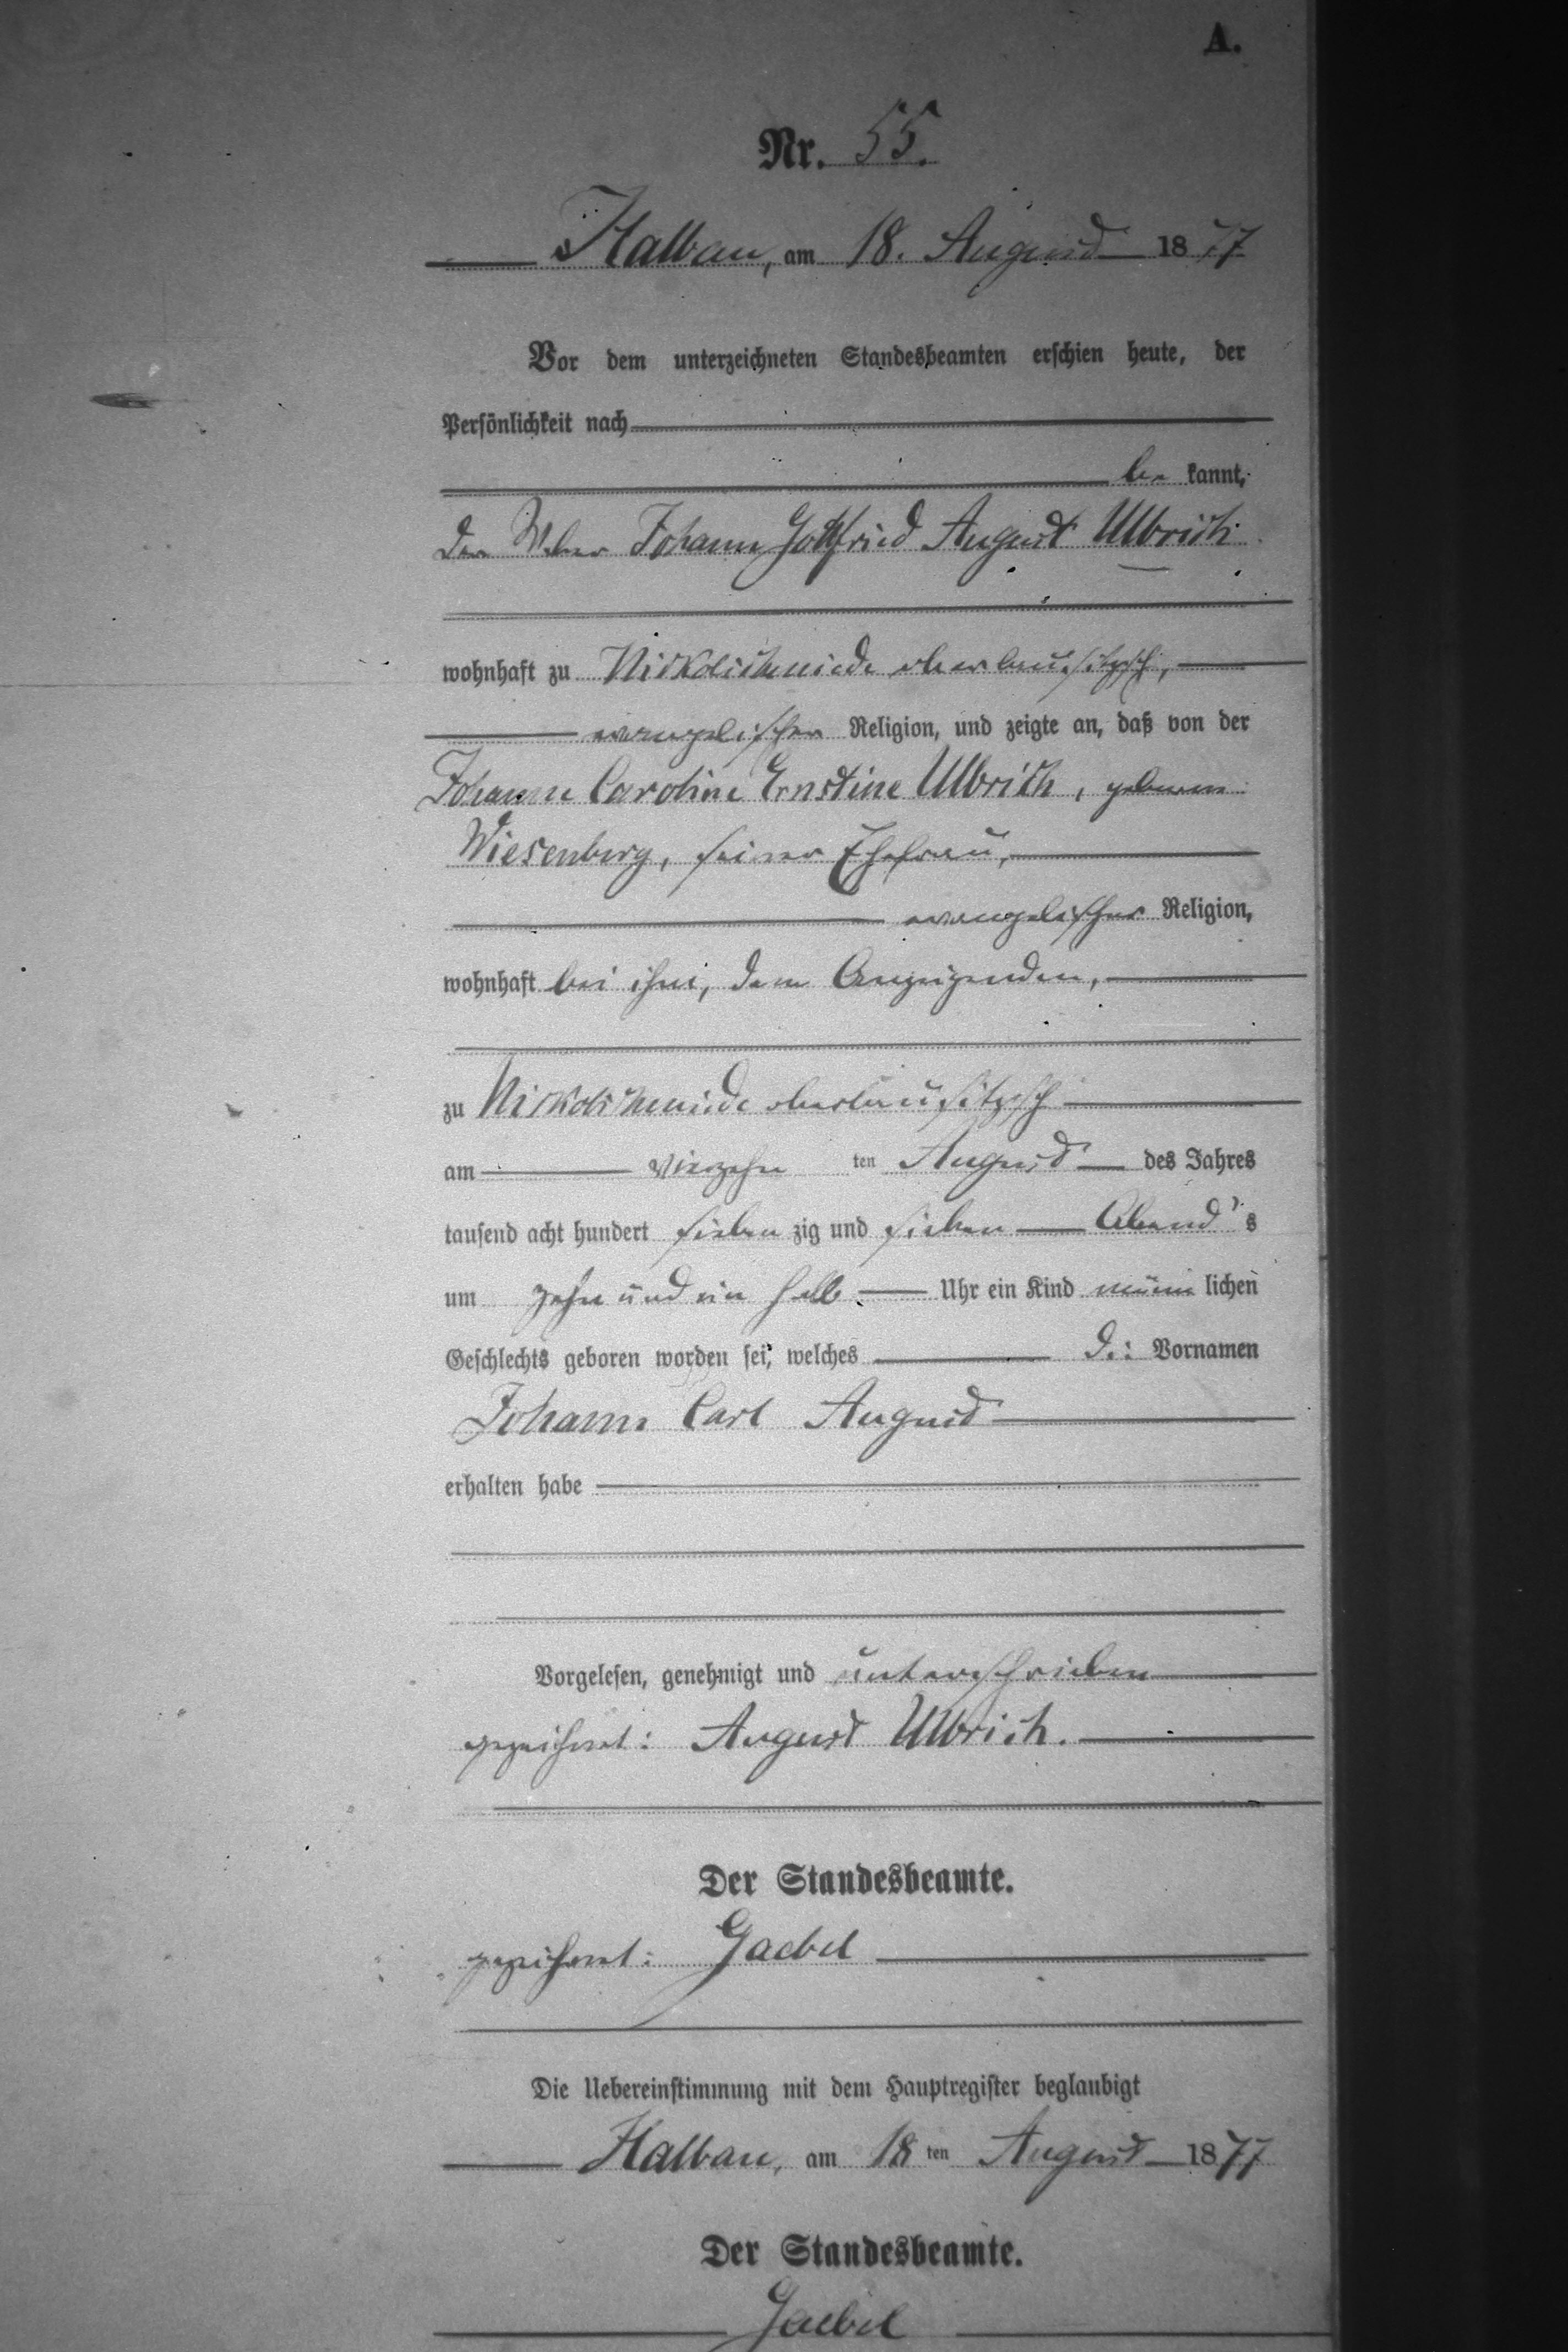 A.
Nr. 55.
Halbau, am 18. August 1877
Vor dem unterzeichneten Standesbeamten erschien heute, der
Persönlichkeit nach
be kannt,
der Weber Johann Gottfried August Ulbrich
wohnhaft zu Nikolschmiede oberlausitzisch,
evangelischer Religion, und zeigte an, daß von der
Johanne Caroline Ernstine Ulbrich, geborne
Wiesenberg, seiner Ehefrau,
evangelischer Religion,
wohnhaft bei ihm, dem Anzeigenden,
zu Nikolschmiede oberlausitzisch
am vierzehn ten August des Jahres
tausend acht hundert sieben zig und sieben Abend's
um zehn und ein halb Uhr ein Kind männ lichen
Geschlechts geboren worden sei, welches d.: Vornamen
Johann Carl August
erhalten habe
Vorgelesen, genehmigt und unterschrieben
gezeichnet: August Ulbrich.
Der Standesbeamte.
gezeichnet: Gaebel
Die Uebereinstimmung mit dem Hauptregister beglaubigt
Halbau, am 18 ten August 1877
Der Standesbeamte.
Gaebel